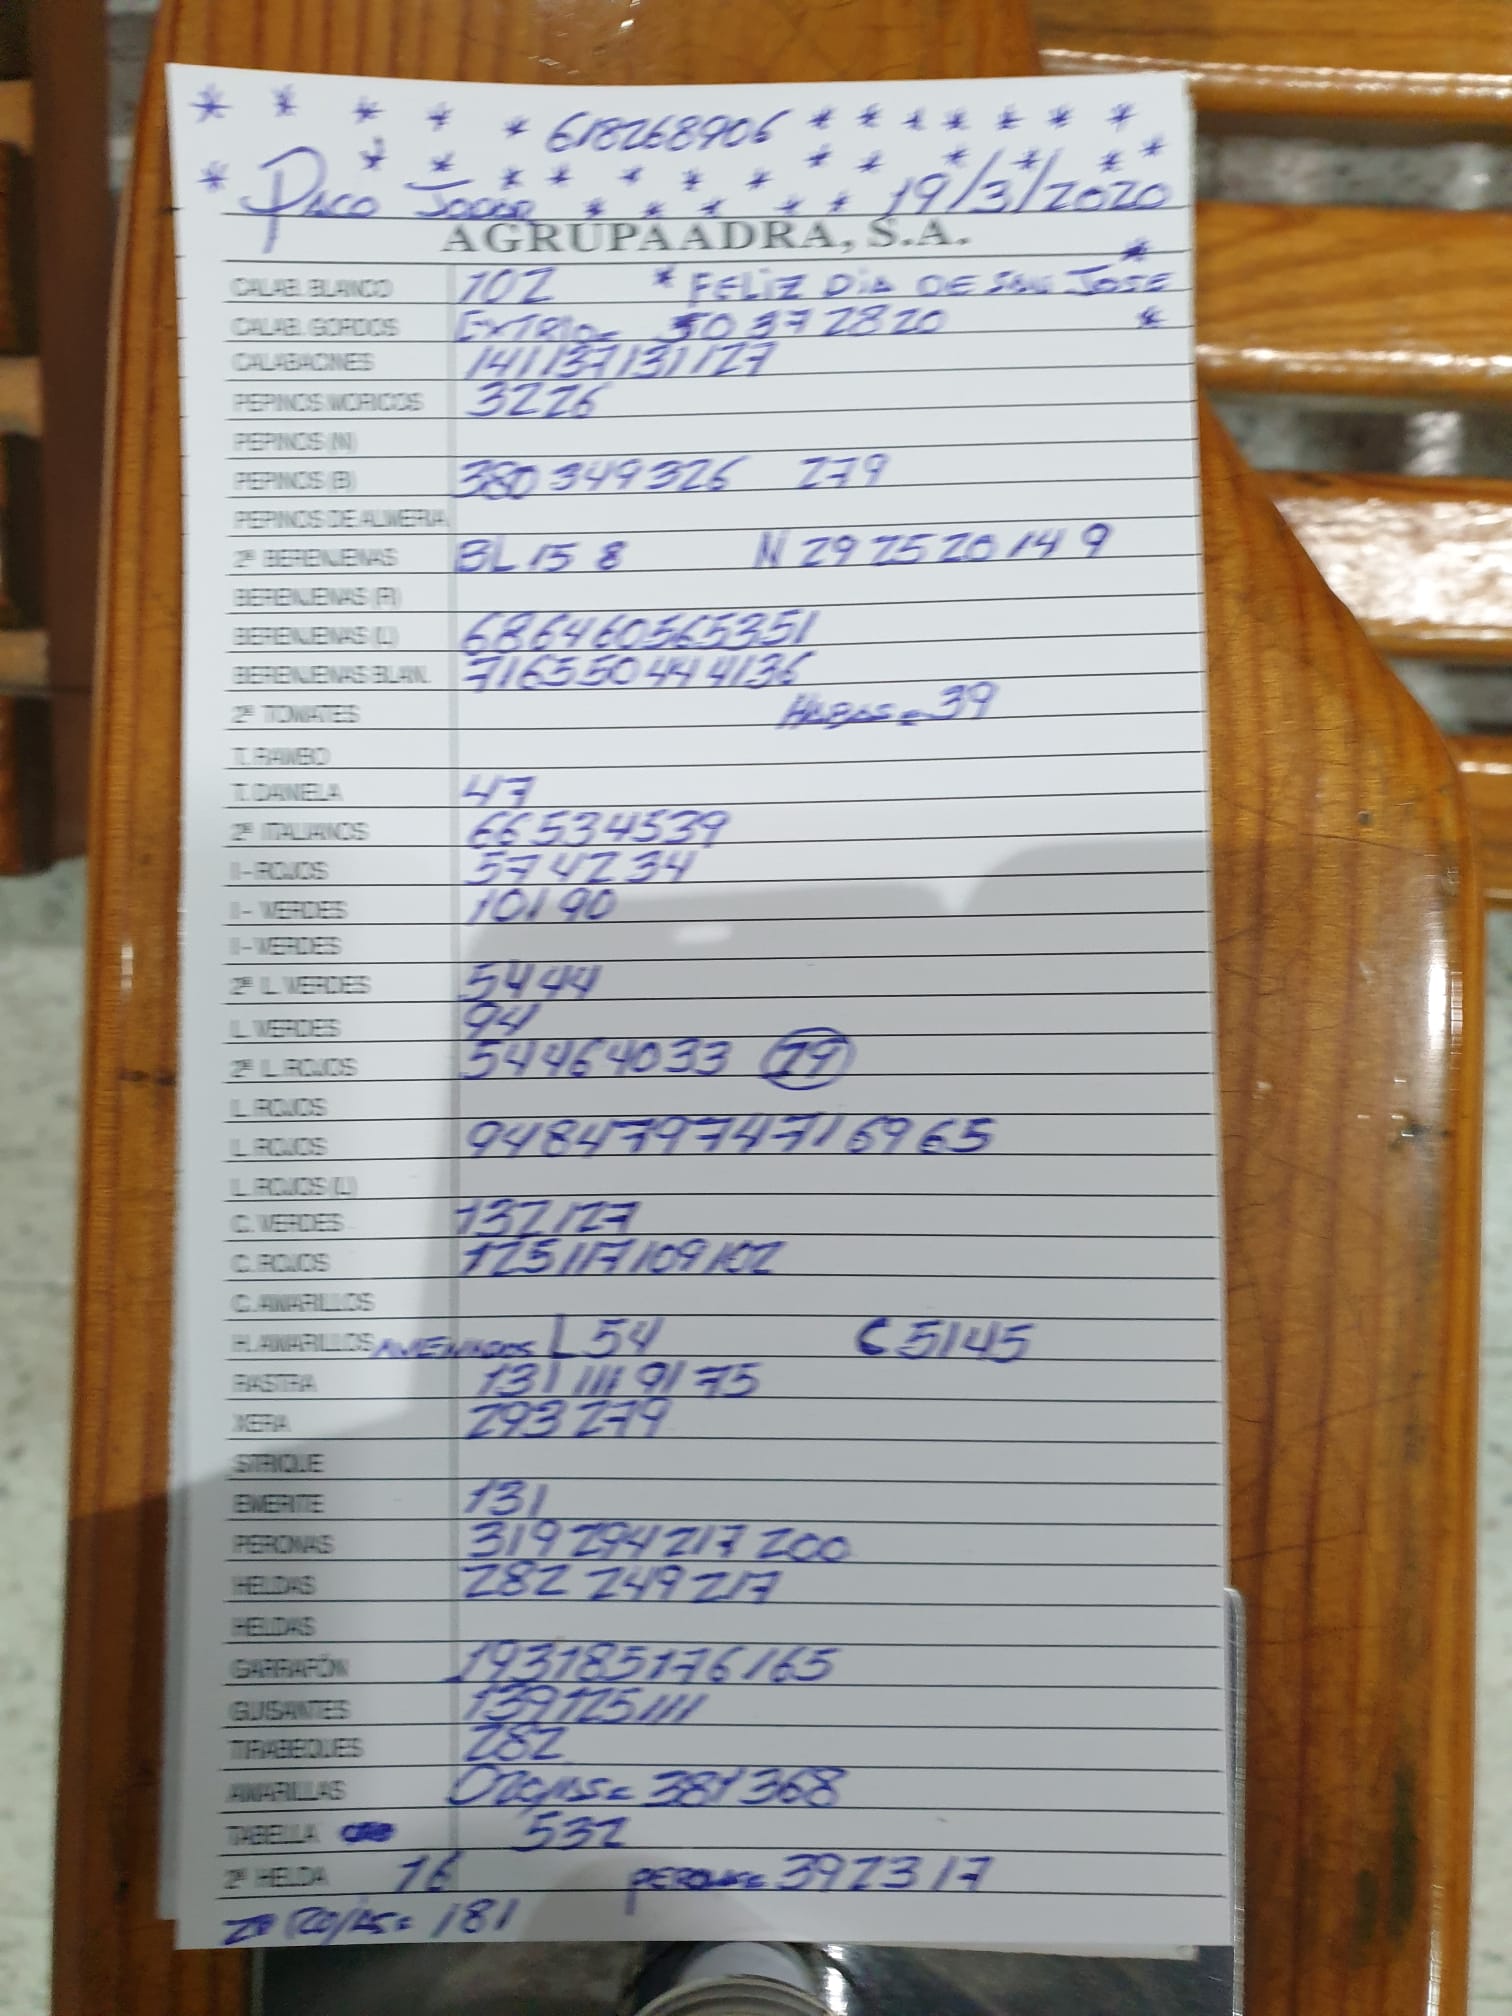 * * * * * 618268906 * * * * * * *
* Paco Jodar * * * * * * 19/3/2020
AGRUPAADRA, S.A.
CALAB. BLANCO 102 * FELIZ DIA DE SAN JOSE *
CALAB. GORDOS EXTRIO= 50 37 28 20 *
CALABACINES 141 137 131 127
PEPINOS MORICOS 32 26
PEPINOS (N)
PEPINOS (B) 380 349 326 279
PEPINOS DE ALMERIA
2ª BERENJENAS BL 15 8 N 29 25 20 14 9
BERENJENAS (R)
BERENJENAS (L) 68 64 60 56 53 51
BERENJENAS BLAN. 71 65 50 44 41 36
2ª TOMATES HABAS= 39
T. RAMBO
T. DANIELA 47
2ª ITALIANOS 66 53 45 39
I - ROJOS 57 42 34
I - VERDES 101 90
I - VERDES
2ª L. VERDES 54 44
L. VERDES 94
2ª L. ROJOS 54 46 40 33 29
L. ROJOS
L. ROJOS 94 84 79 74 71 69 65
L. ROJOS (L)
C. VERDES 132 127
C. ROJOS 125 117 109 102
C. AMARILLOS
H. AMARILLOS L 54 C 51 45
RASTRA 131 111 91 75
XERA 293 279
STRIQUE
EMERITE 131
PERONAS 319 294 217 200
HELDAS 282 249 217
HELDAS
GARRAFÓN 193 185 176 165
GUISANTES 139 125 111
TIRABEQUES 282
AMARILLAS = 381 368
TABELLA 532
2ª HELDA 76 PERONA= 392 317
2ª ROJAS= 181